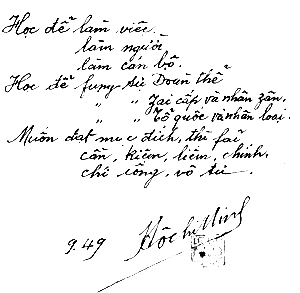 Học để làm việc.
làm người.
làm cán bộ.
Học để fụng sự Đoàn thể
" " Jai cấp và nhân zân,
" " Tổ quốc và nhân loại.
Muốn đạt mục đích, thì fải
cần, kiệm, liêm, chính,
chí công, vô tư
9.49 Hồ Chí Minh